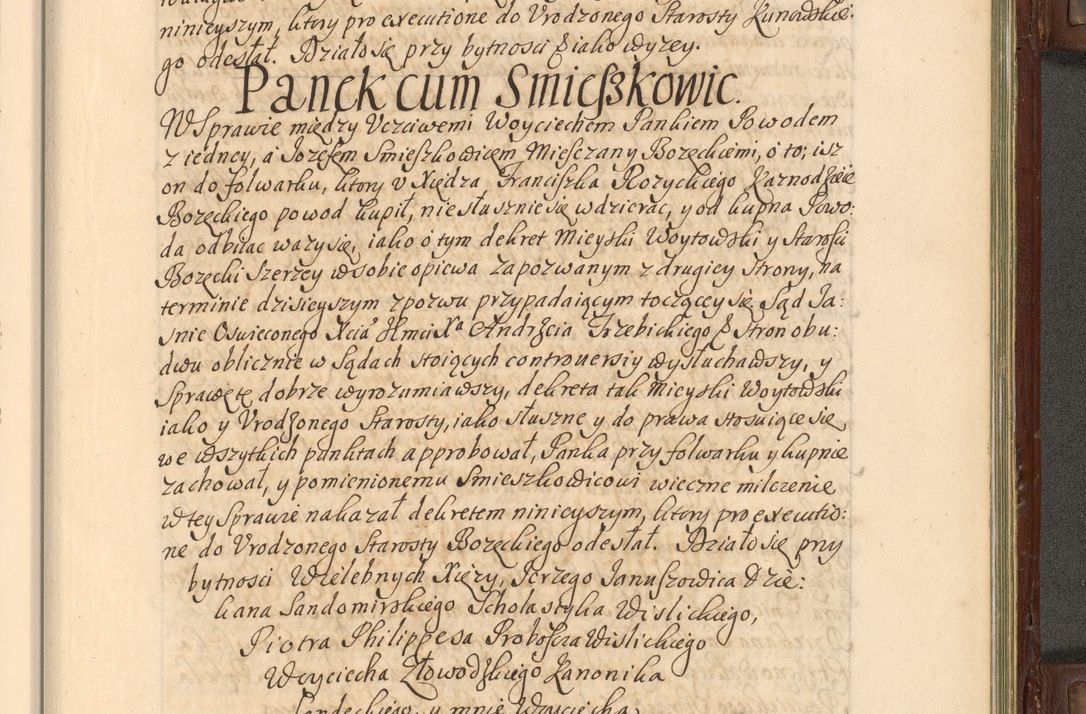 ninieyszym, ktory pro executione do Vrodzonego Starosty Kunowskie:
go odesłał. Działo się przy bytnosci & iako wyzey.
Panek cum Smieszkowic.
W Sprawie między Vczciwemi Woyciechem Pankiem Powodem
z iedney, a Jozefem Smieszkowicem Miesczany Bozęckiemi, o to; isz
on do folwarku, ktory v Xiędza Franciszka Rozyckiego Kaznodzieie
Bozęckiego powod kupił, nie słusznie się wdzierac, y od kupna Powo:
da odbiiac wazy się, iako o tym dekret Mieyski Woytowski y Starosci
Bozęcki szerzey w sobie opiewa zapozwanym z drugiey strony, na
terminie dzisieyszym z pozwu przypadaiącym toczącey się, Sąd Ja:
snie Oswieconego Xcia Jmci Xa Andrzeia Trzebickiego & Stron obu:
dwu oblicznie w Sądach stoiących controuersiy wysłuchawszy, y
Sprawę tę dobrze wyrozumiawszy, dekreta tak Mieyski Woytowski
iako y Vrodzonego Starosty, iako słuszne y do prawa stosuiące się
we wszytkich punktach approbował, Panka przy folwarku y kupnie
zachował, y pomienionemu Smieszkowicowi wieczne milczenie
w tey Sprawie nakazał dekretem ninieyszym, ktory pro executio:
ne do Vrodzonego Starosty Bozęckiego odesłał. Działo się przy
bytnosci Wielebnych Xięzy, Jerzego Januszowica Dzie:
kana Sandomirskiego Scholastyka Wislickiego,
Piotra Philippesa Proboszcza Wislickiego
Woyciecha Zławodzkiego Kanonika
Sandeckiego, y mnie Woyciecha